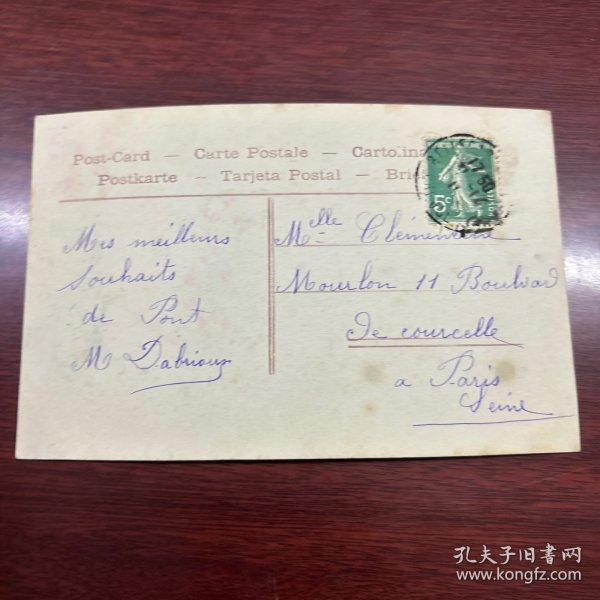 Post-Card — Carte Postale — Cartolina
Postkarte — Tarjeta Postal —
5c
Mes meilleurs
Souhaits
de Pont
M Dabrioux
Melle Clémentine
Mourlon 11 Boulvard
De courcelle
a Paris
Seine
孔夫子旧书网
www.kongfz.com